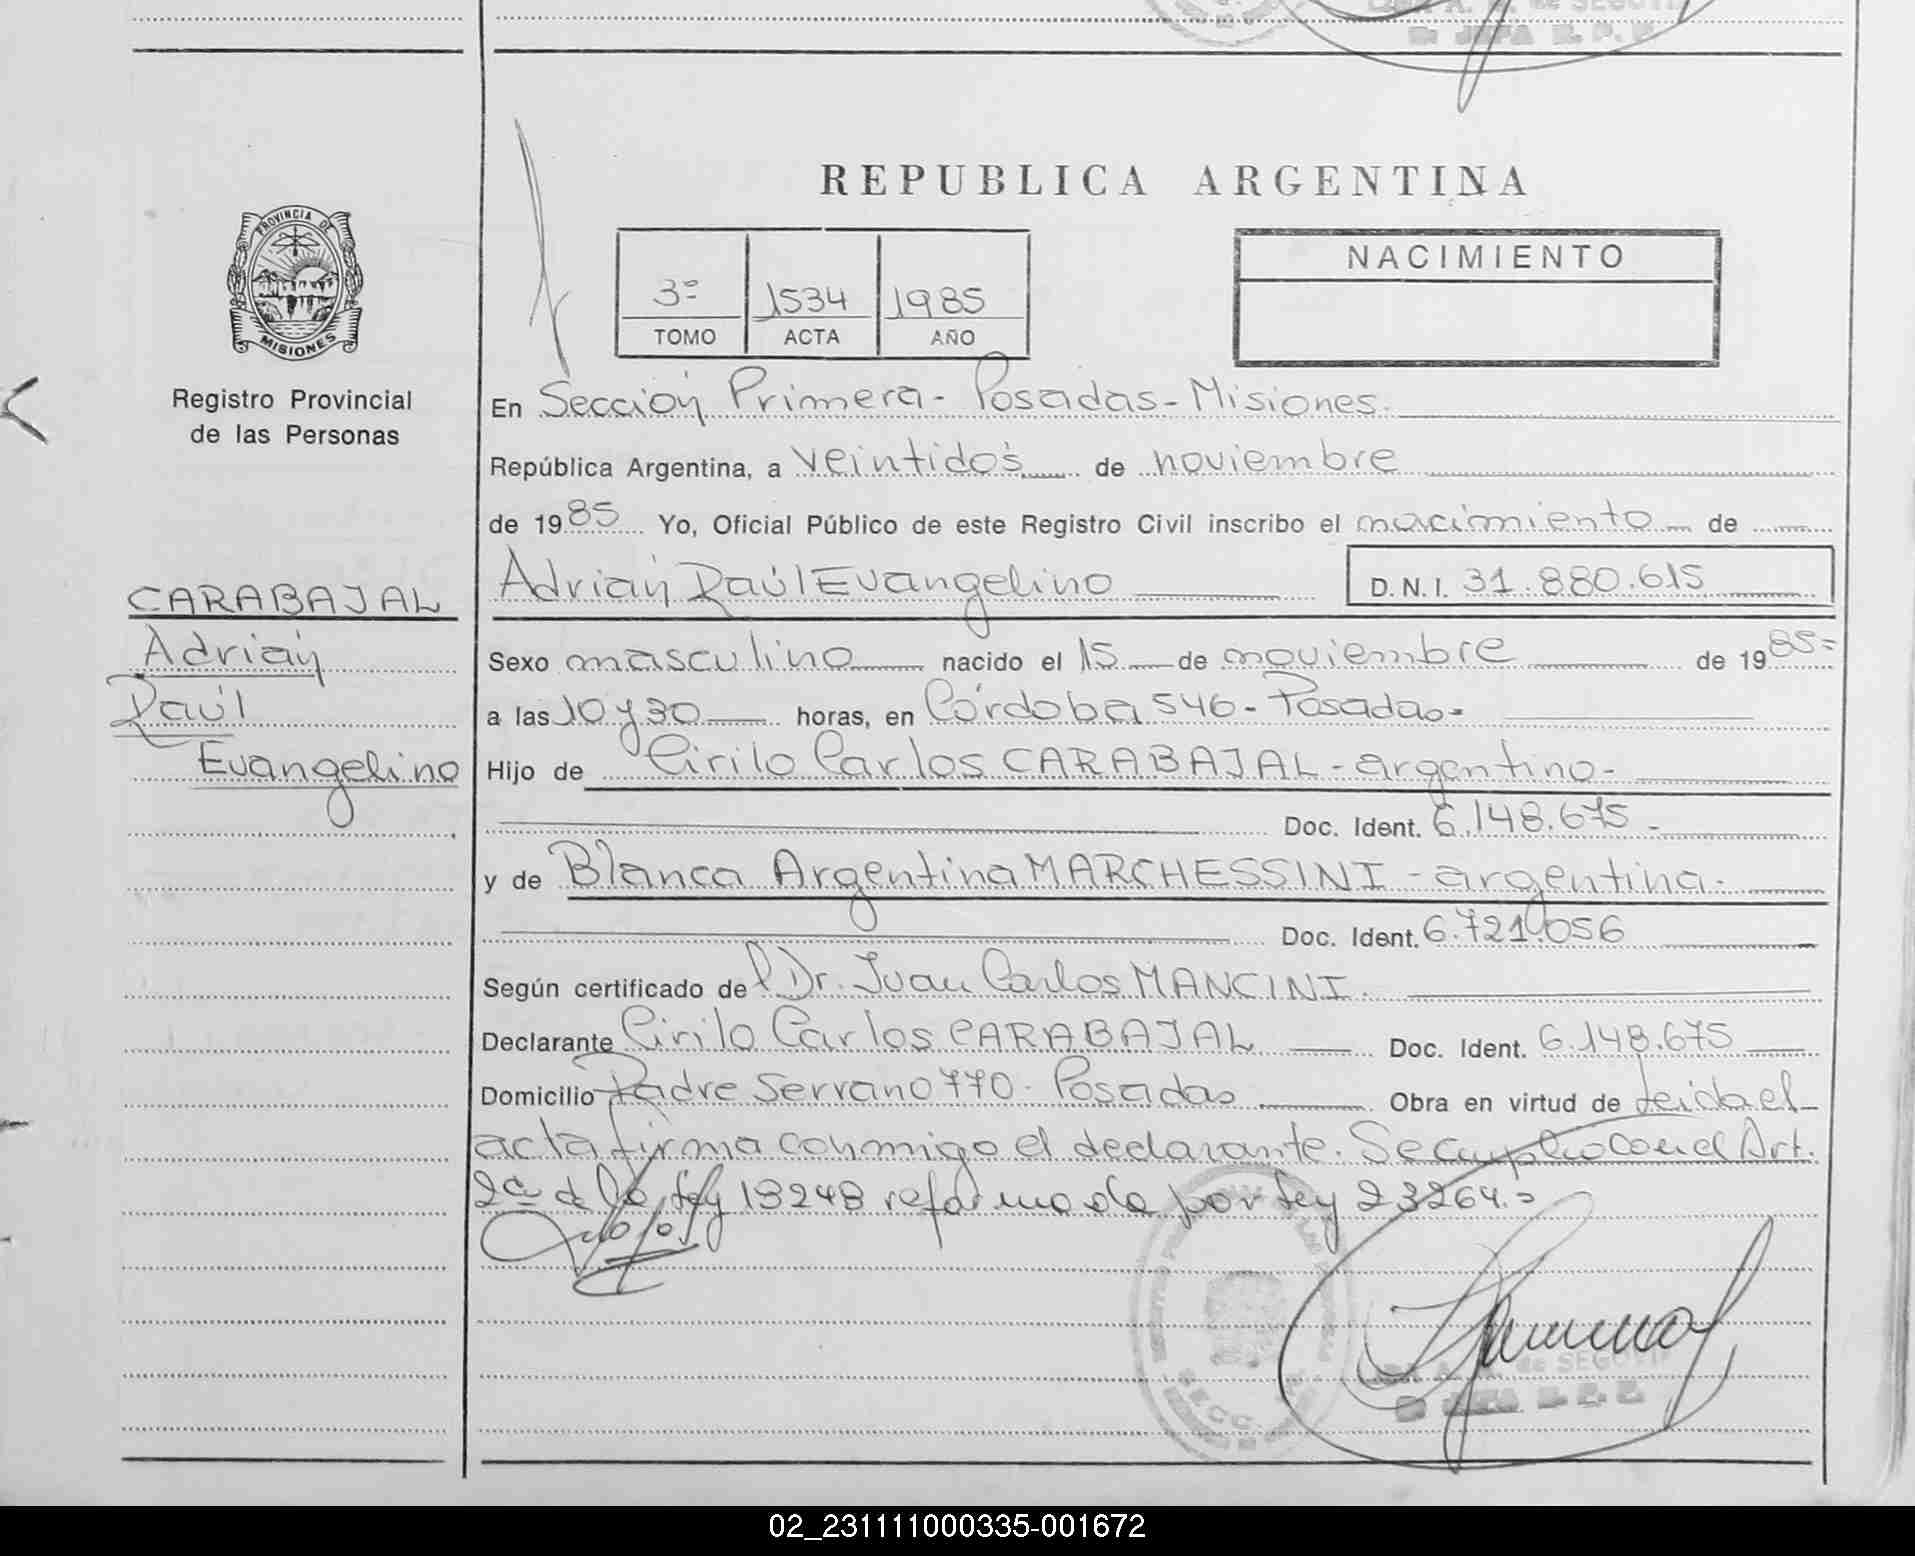 REPUBLICA ARGENTINA
PROVINCIA DE
MISIONES
Registro Provincial
de las Personas
3º 1534 1985
TOMO ACTA AÑO
NACIMIENTO
En Sección Primera - Posadas - Misiones.
República Argentina, a veintidós de noviembre
de 1985 Yo, Oficial Público de este Registro Civil inscribo el nacimiento de
Adrián Raúl Evangelino D.N.I. 31.880.615
CARABAJAL
Adrián
Raúl
Evangelino
Sexo masculino nacido el 15 de noviembre de 1985=
a las 10 y 30 horas, en Córdoba 546 - Posadas-
Hijo de Cirilo Carlos CARABAJAL - argentino-
Doc. Ident. 6.148.675 -
y de Blanca Argentina MARCHESSINI - argentina-
Doc. Ident. 6.721.056
Según certificado del Dr. Juan Carlos MANCINI.
Declarante Cirilo Carlos CARABAJAL Doc. Ident. 6.148.675
Domicilio Padre Serrano 770 - Posadas Obra en virtud de Leida el
acta firma conmigo el declarante. Se cumplio con el Art.
2º de la Ley 18248 reformada por Ley 23264.=
de SEGOVIA
JEFA R. P. P.
SECC.
02_231111000335-001672